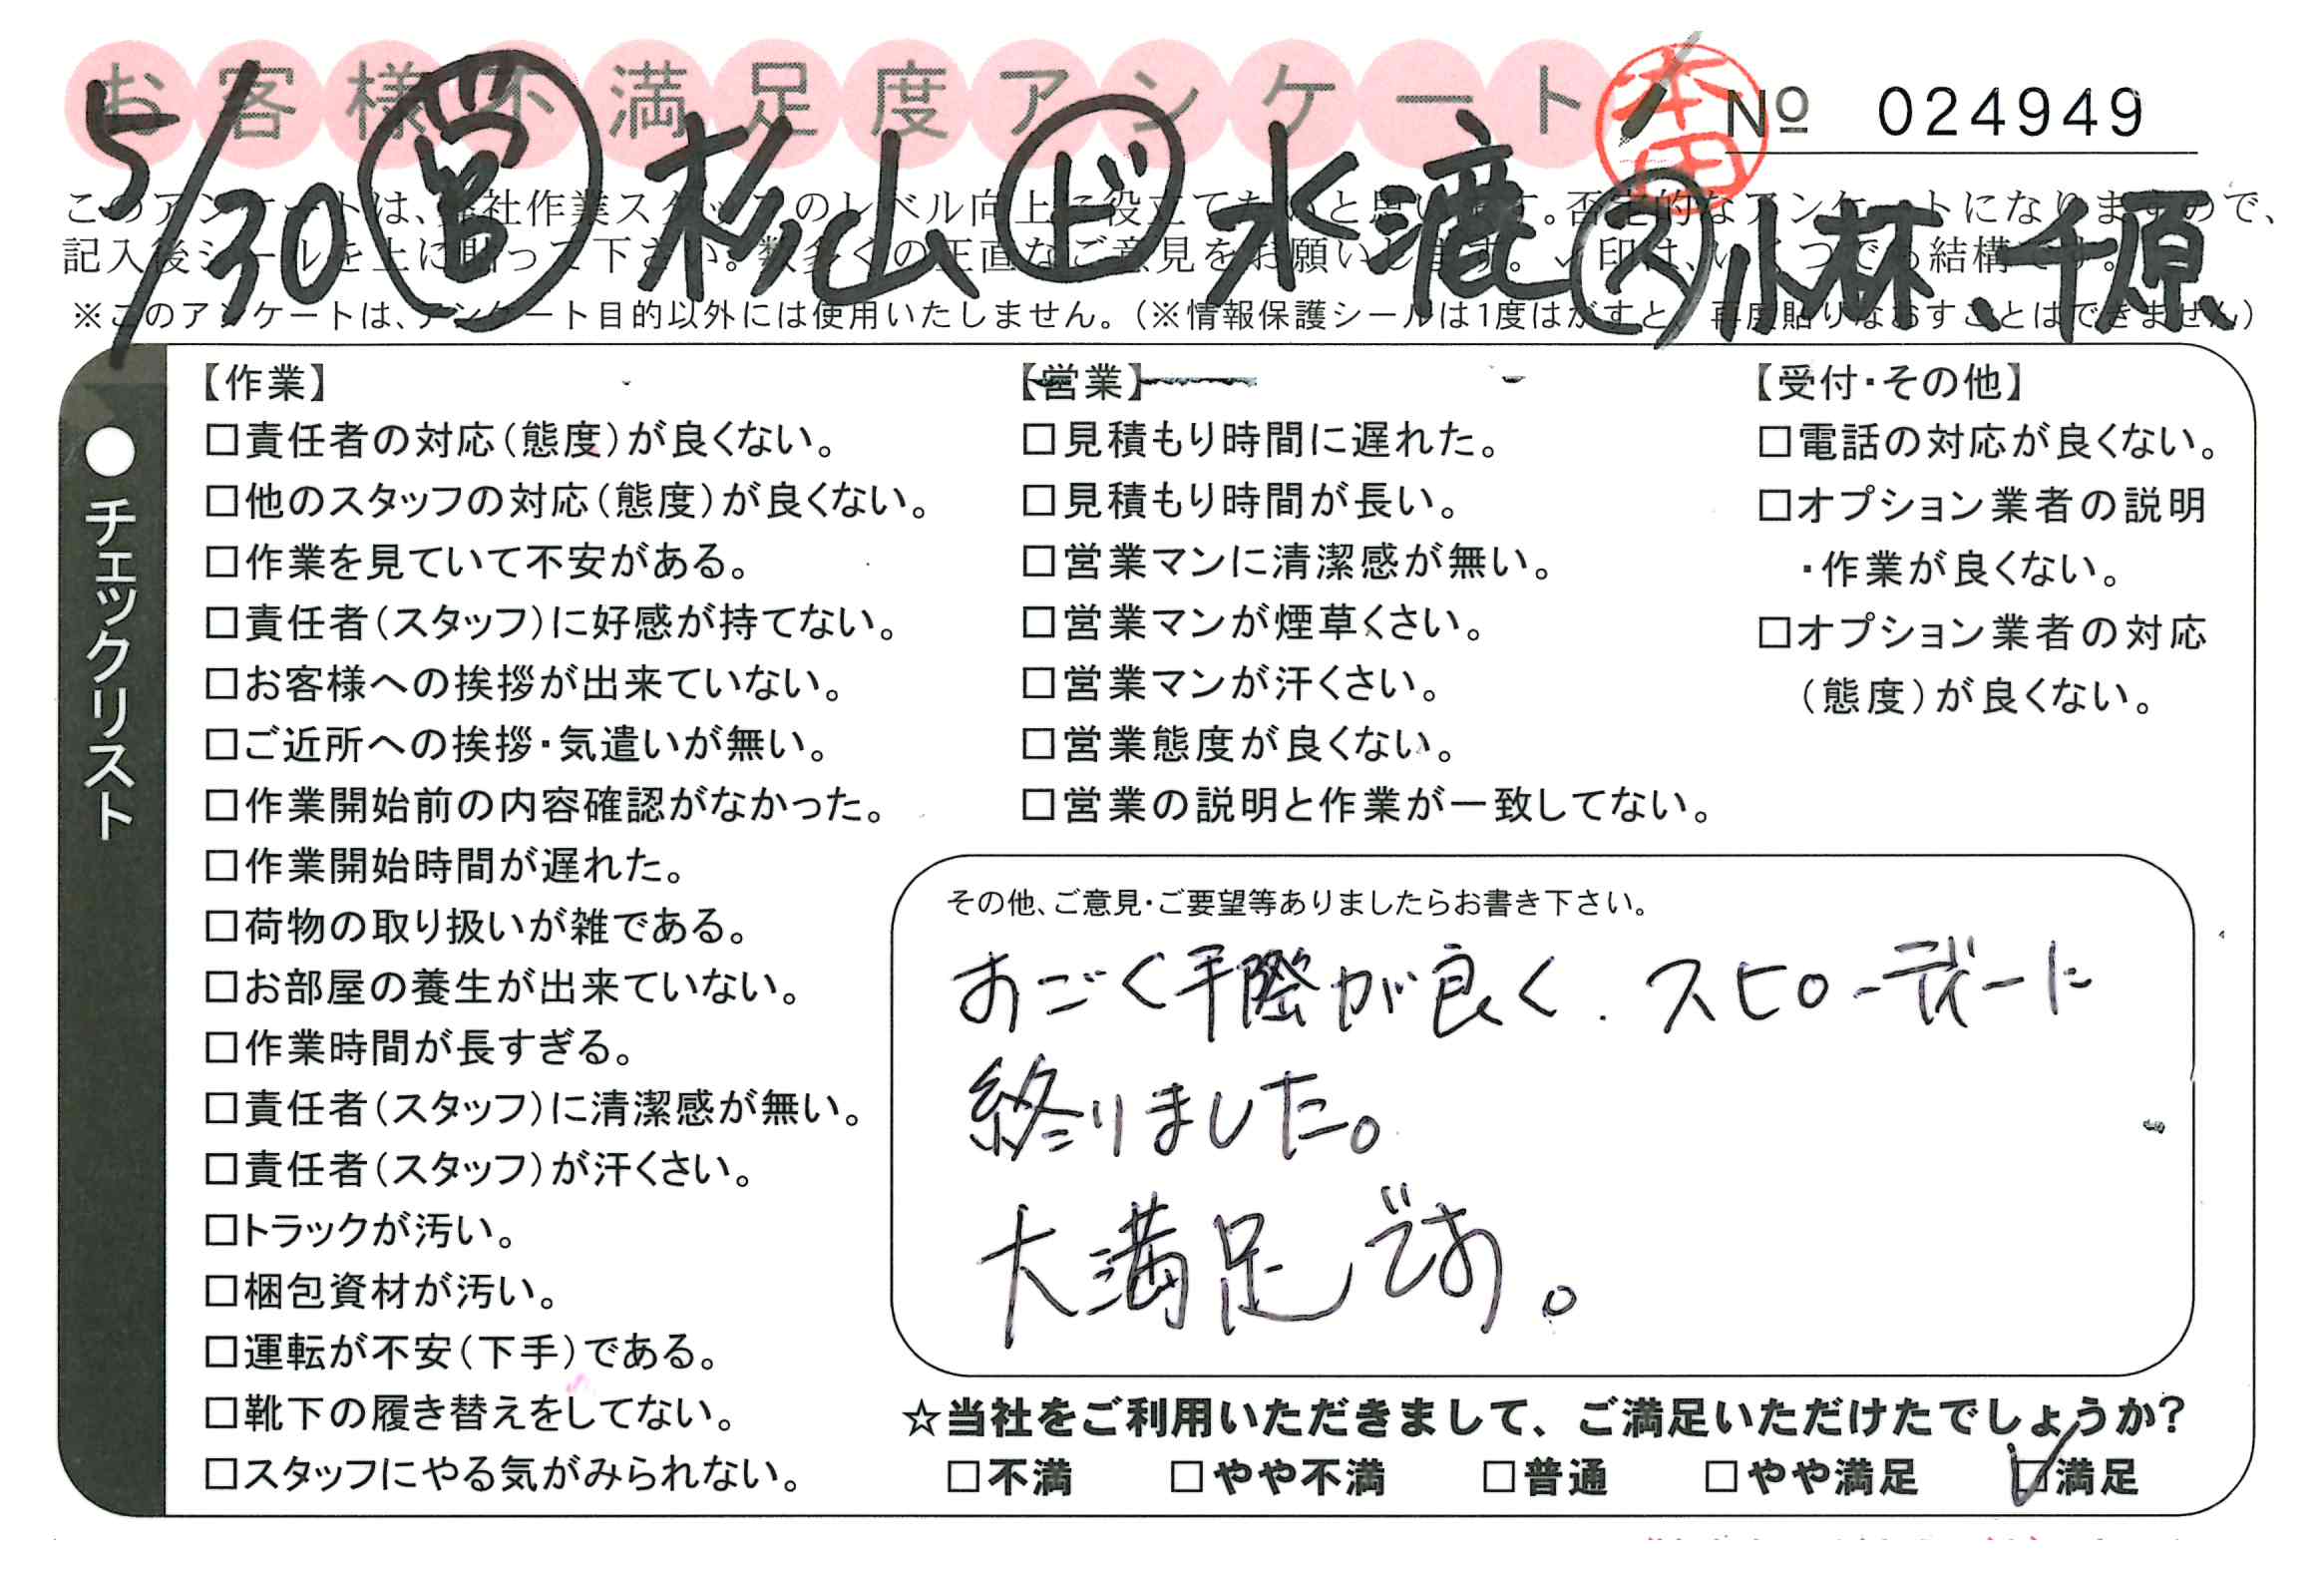 お客様不満足度アンケート
本田
№ 024949
5/30 営 杉山 ビ 水漉 ス 小林、千原
このアンケートは、当社作業スタッフのレベル向上に役立てたいと思います。否定的なアンケートになりますので、
記入後シールを上に貼って下さい。数多くの正直なご意見をお願いします。✓印は、いくつでも結構です。
※このアンケートは、アンケート目的以外には使用いたしません。(※情報保護シールは1度はがすと、再度貼りなおすことはできません)
●チェックリスト
【作業】
□責任者の対応(態度)が良くない。
□他のスタッフの対応(態度)が良くない。
□作業を見ていて不安がある。
□責任者(スタッフ)に好感が持てない。
□お客様への挨拶が出来ていない。
□ご近所への挨拶・気遣いが無い。
□作業開始前の内容確認がなかった。
□作業開始時間が遅れた。
□荷物の取り扱いが雑である。
□お部屋の養生が出来ていない。
□作業時間が長すぎる。
□責任者(スタッフ)に清潔感が無い。
□責任者(スタッフ)が汗くさい。
□トラックが汚い。
□梱包資材が汚い。
□運転が不安(下手)である。
□靴下の履き替えをしてない。
□スタッフにやる気がみられない。
【営業】
□見積もり時間に遅れた。
□見積もり時間が長い。
□営業マンに清潔感が無い。
□営業マンが煙草くさい。
□営業マンが汗くさい。
□営業態度が良くない。
□営業の説明と作業が一致してない。
【受付・その他】
□電話の対応が良くない。
□オプション業者の説明
・作業が良くない。
□オプション業者の対応
(態度)が良くない。
その他、ご意見・ご要望等ありましたらお書き下さい。
すごく手際が良く、スピーディーに
終りました。
大満足です。
☆当社をご利用いただきまして、ご満足いただけたでしょうか?
□不満 □やや不満 □普通 □やや満足 ☑満足